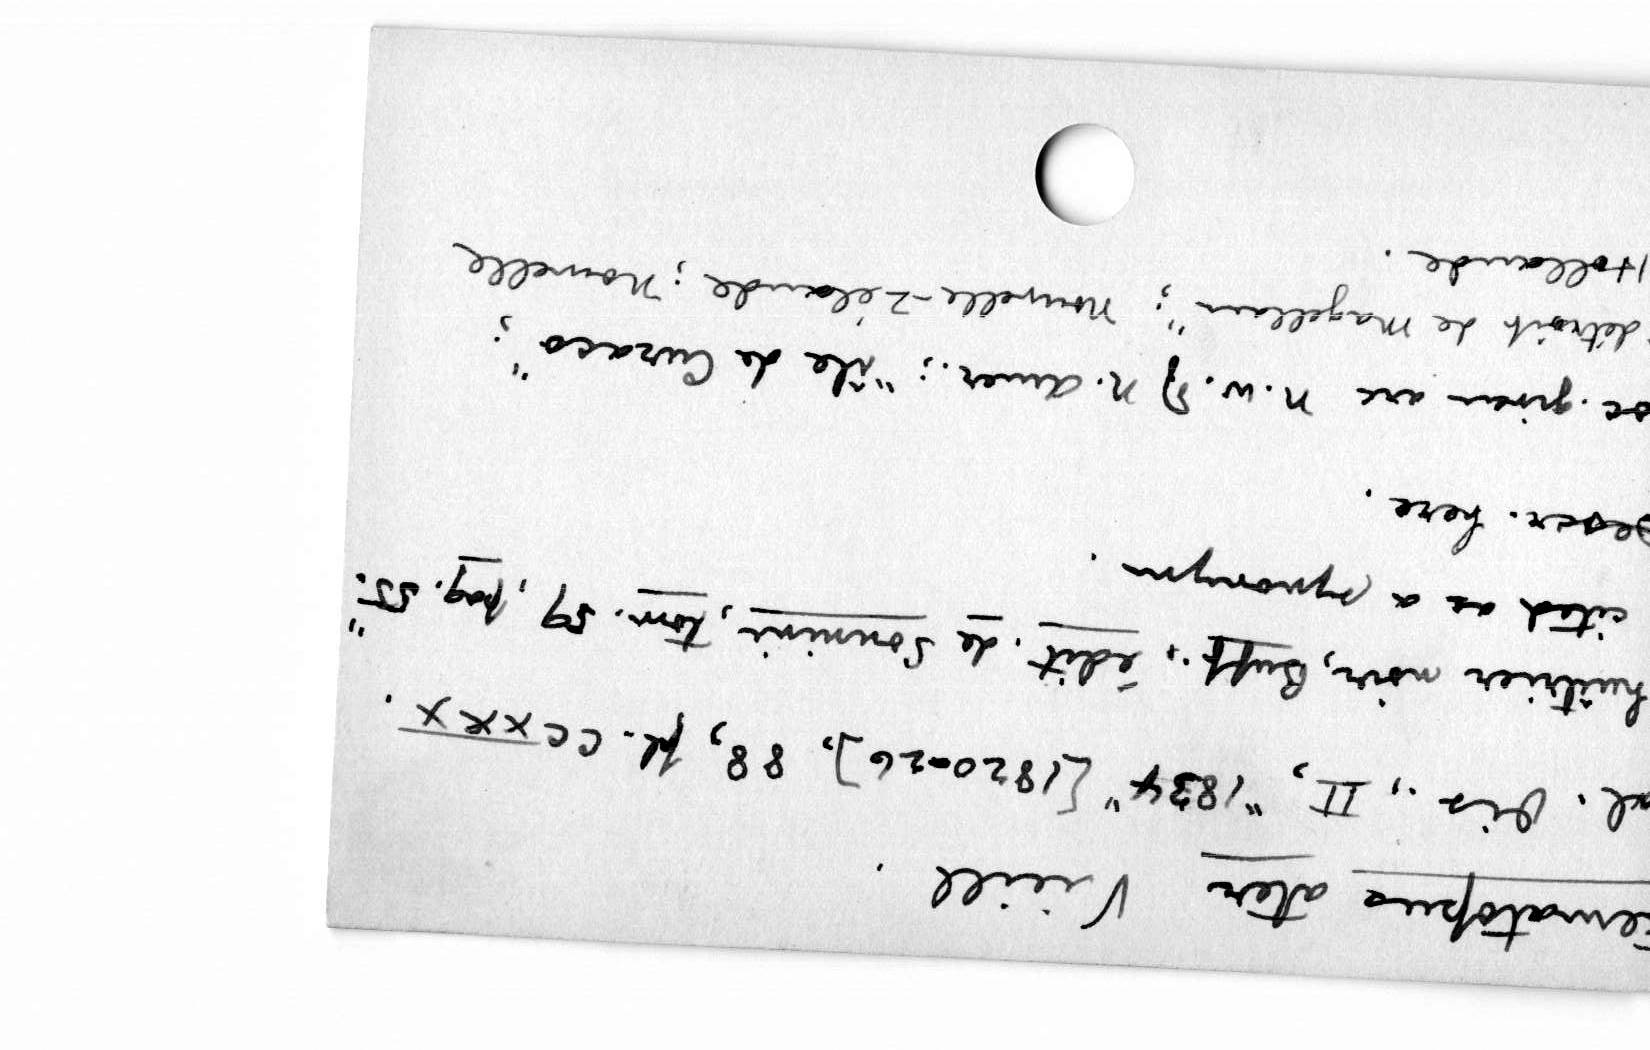 ematopus ater Vieill.
al. Ois., II, "1834" [1820-26], 88, pl. CCXXX.
huîtrier noir, Buff., édit. de Sonnini, tom. 59, pag. 55."
cited as a synonym.
Descr. here.
oc. given are N.W. of N. Amer.; "île de Curaco";
détroit de Magellan"; Nouvelle-Zélande; Nouvelle
Hollande.